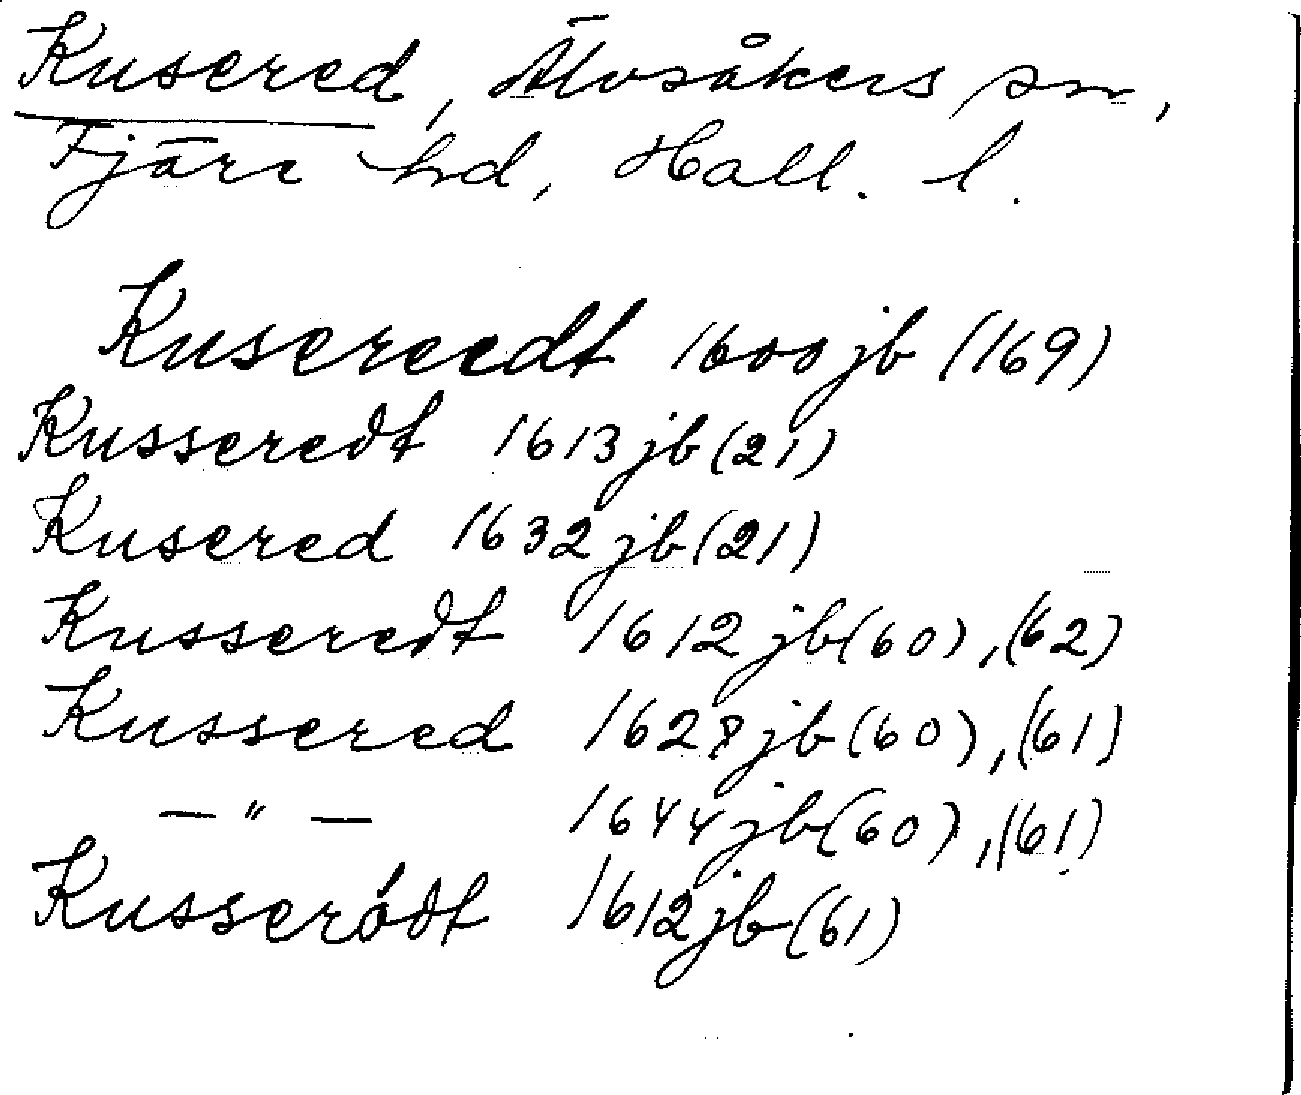 Kusered, Älvsåkers sn,
Fjäre hd, Hall. l.
Kusereedt 1600 jb (169)
Kusseredt 1613 jb (21)
Kusered 1632 jb (21)
Kusseredt 1612 jb (60), (62)
Kussered 1628 jb (60), (61)
— " — 1644 jb (60), (61)
Kusserødt 1612 jb (61)